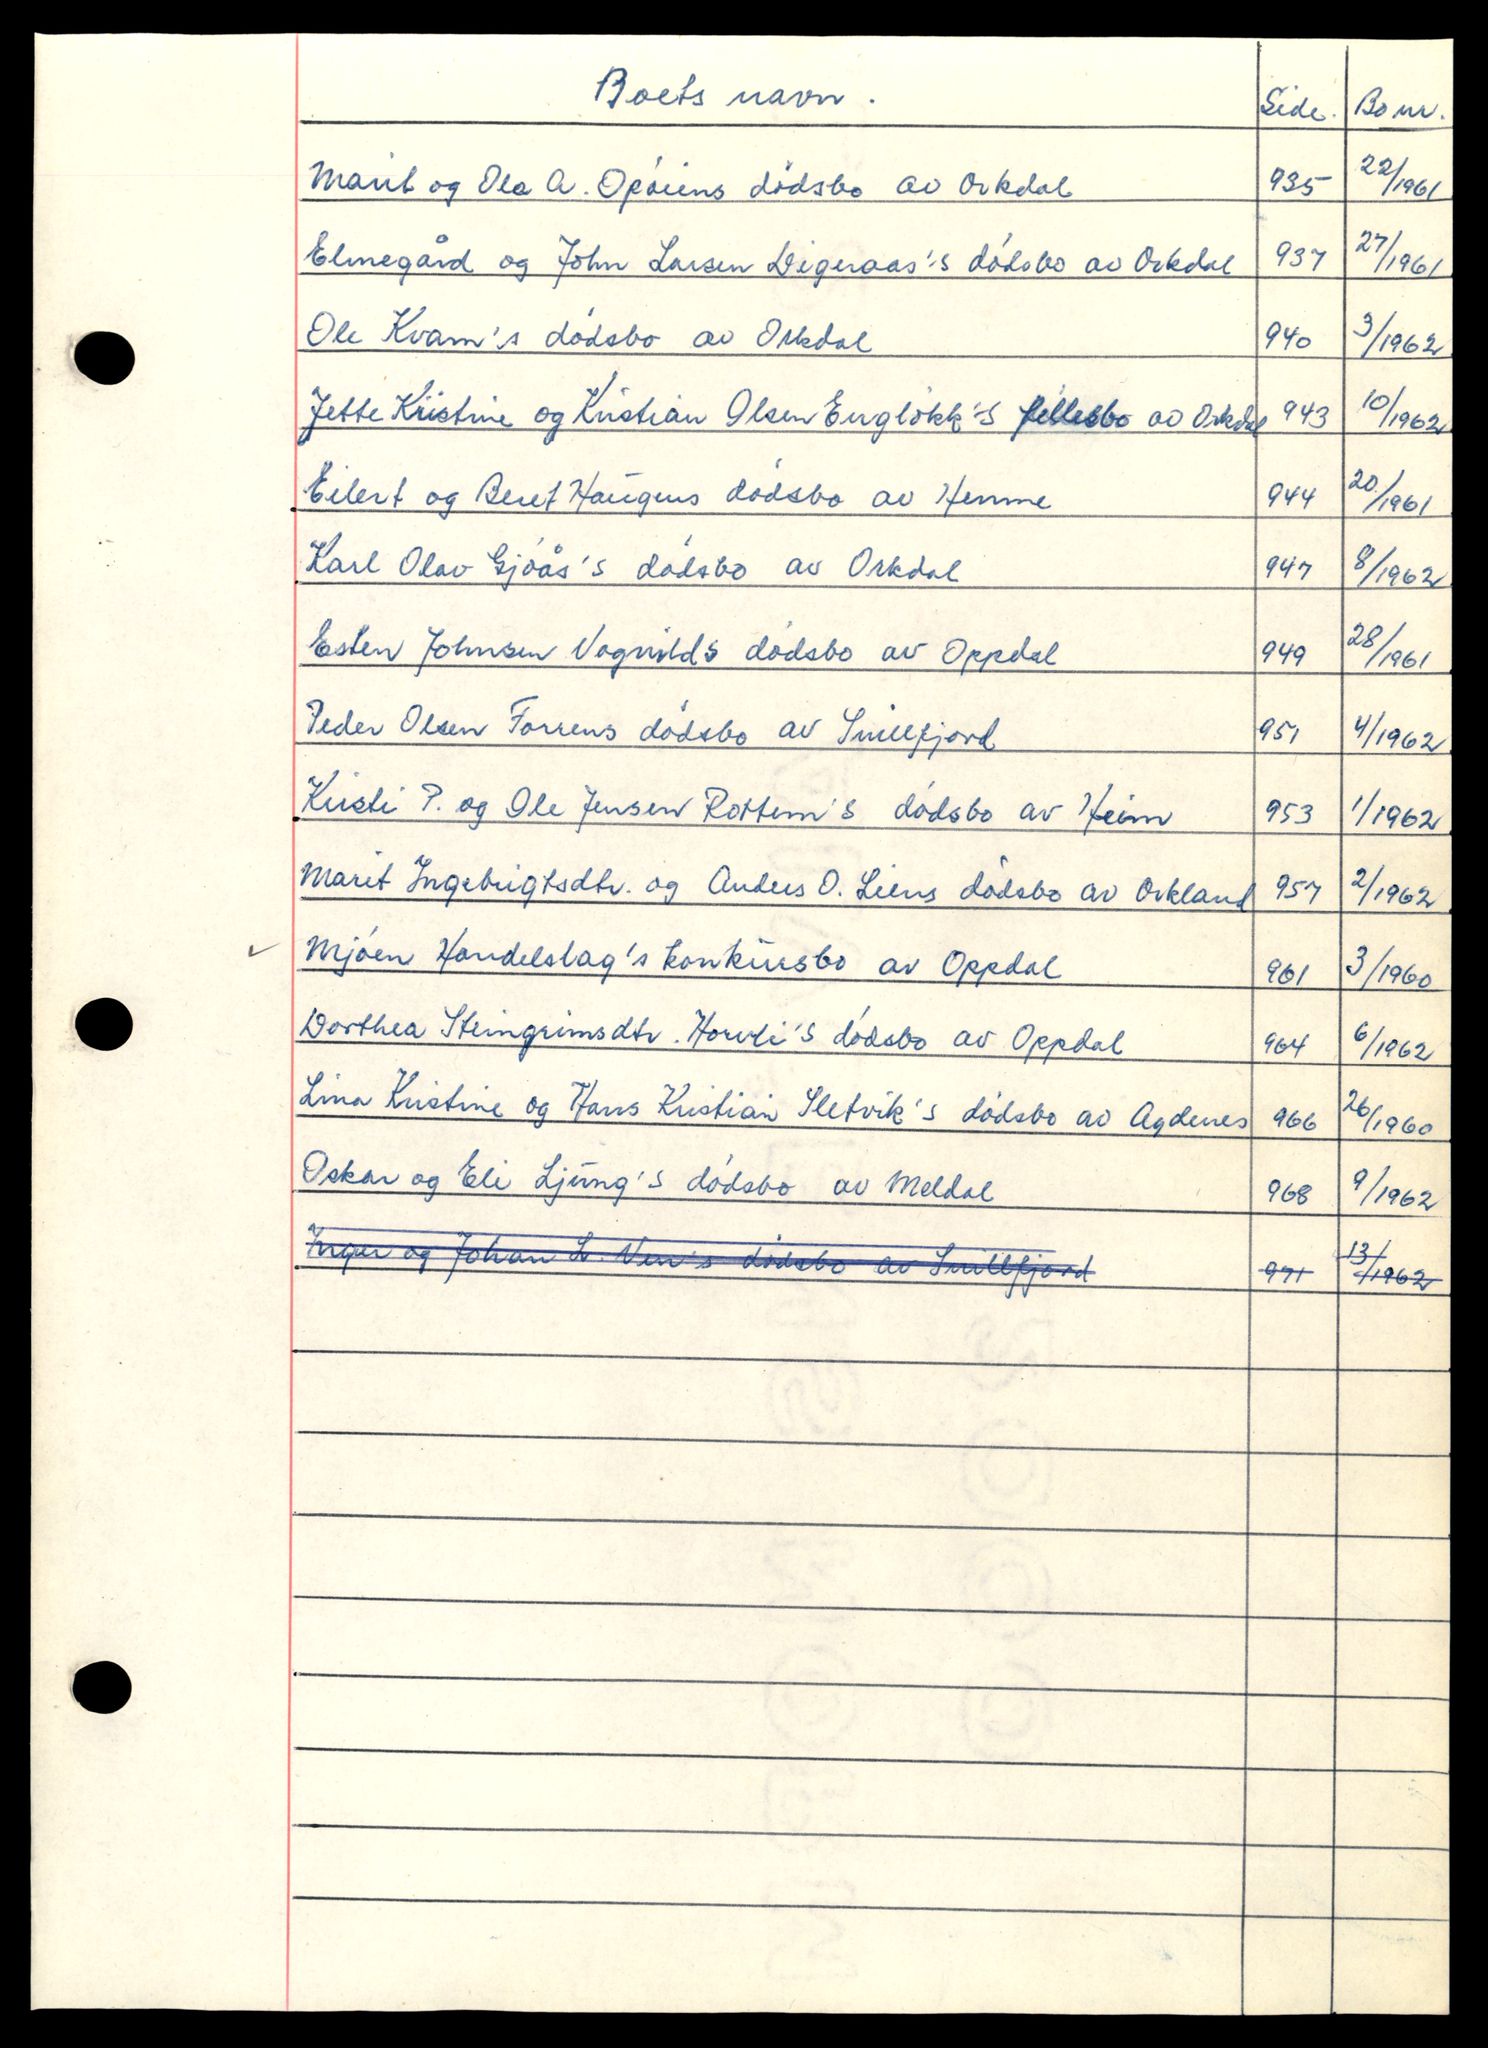 Boets navn. Side. Bo nr.
Marit og Ola A. Opöiens dödsbo av Orkdal 935 22/1961
Elmegård og John Larsen Digeraas's dödsbo av Orkdal 937 27/1961
Ole Kvam's dödsbo av Orkdal 940 3/1962
Jette Kristine og Kristian Olsen Englökk's fellesbo av Orkdal 943 10/1962
Eilert og Beret Haugens dödsbo av Hemne 944 20/1961
Karl Olav Gjöås's dödsbo av Orkdal 947 8/1962
Esten Johnsen Vognilds dödsbo av Oppdal 949 28/1961
Peder Olsen Forrens dödsbo av Snillfjord 951 4/1962
Kirsti P. og Ole Jensen Rottem's dödsbo av Heim 953 1/1962
Marit Ingebrigtsdtr. og Anders O. Liens dödsbo av Orkland 957 2/1962
✓ Mjöen Handelslag's konkursbo av Oppdal 961 3/1960
Dorthea Steingrimsdtr. Horvli's dödsbo av Oppdal 964 6/1962
Lina Kristine og Hans Kristian Sletvik's dödsbo av Agdenes 966 26/1960
Oskar og Eli Ljung's dödsbo av Meldal 968 9/1962
Inger og Johan L. Ven's dödsbo av Snillfjord 971 13/1962